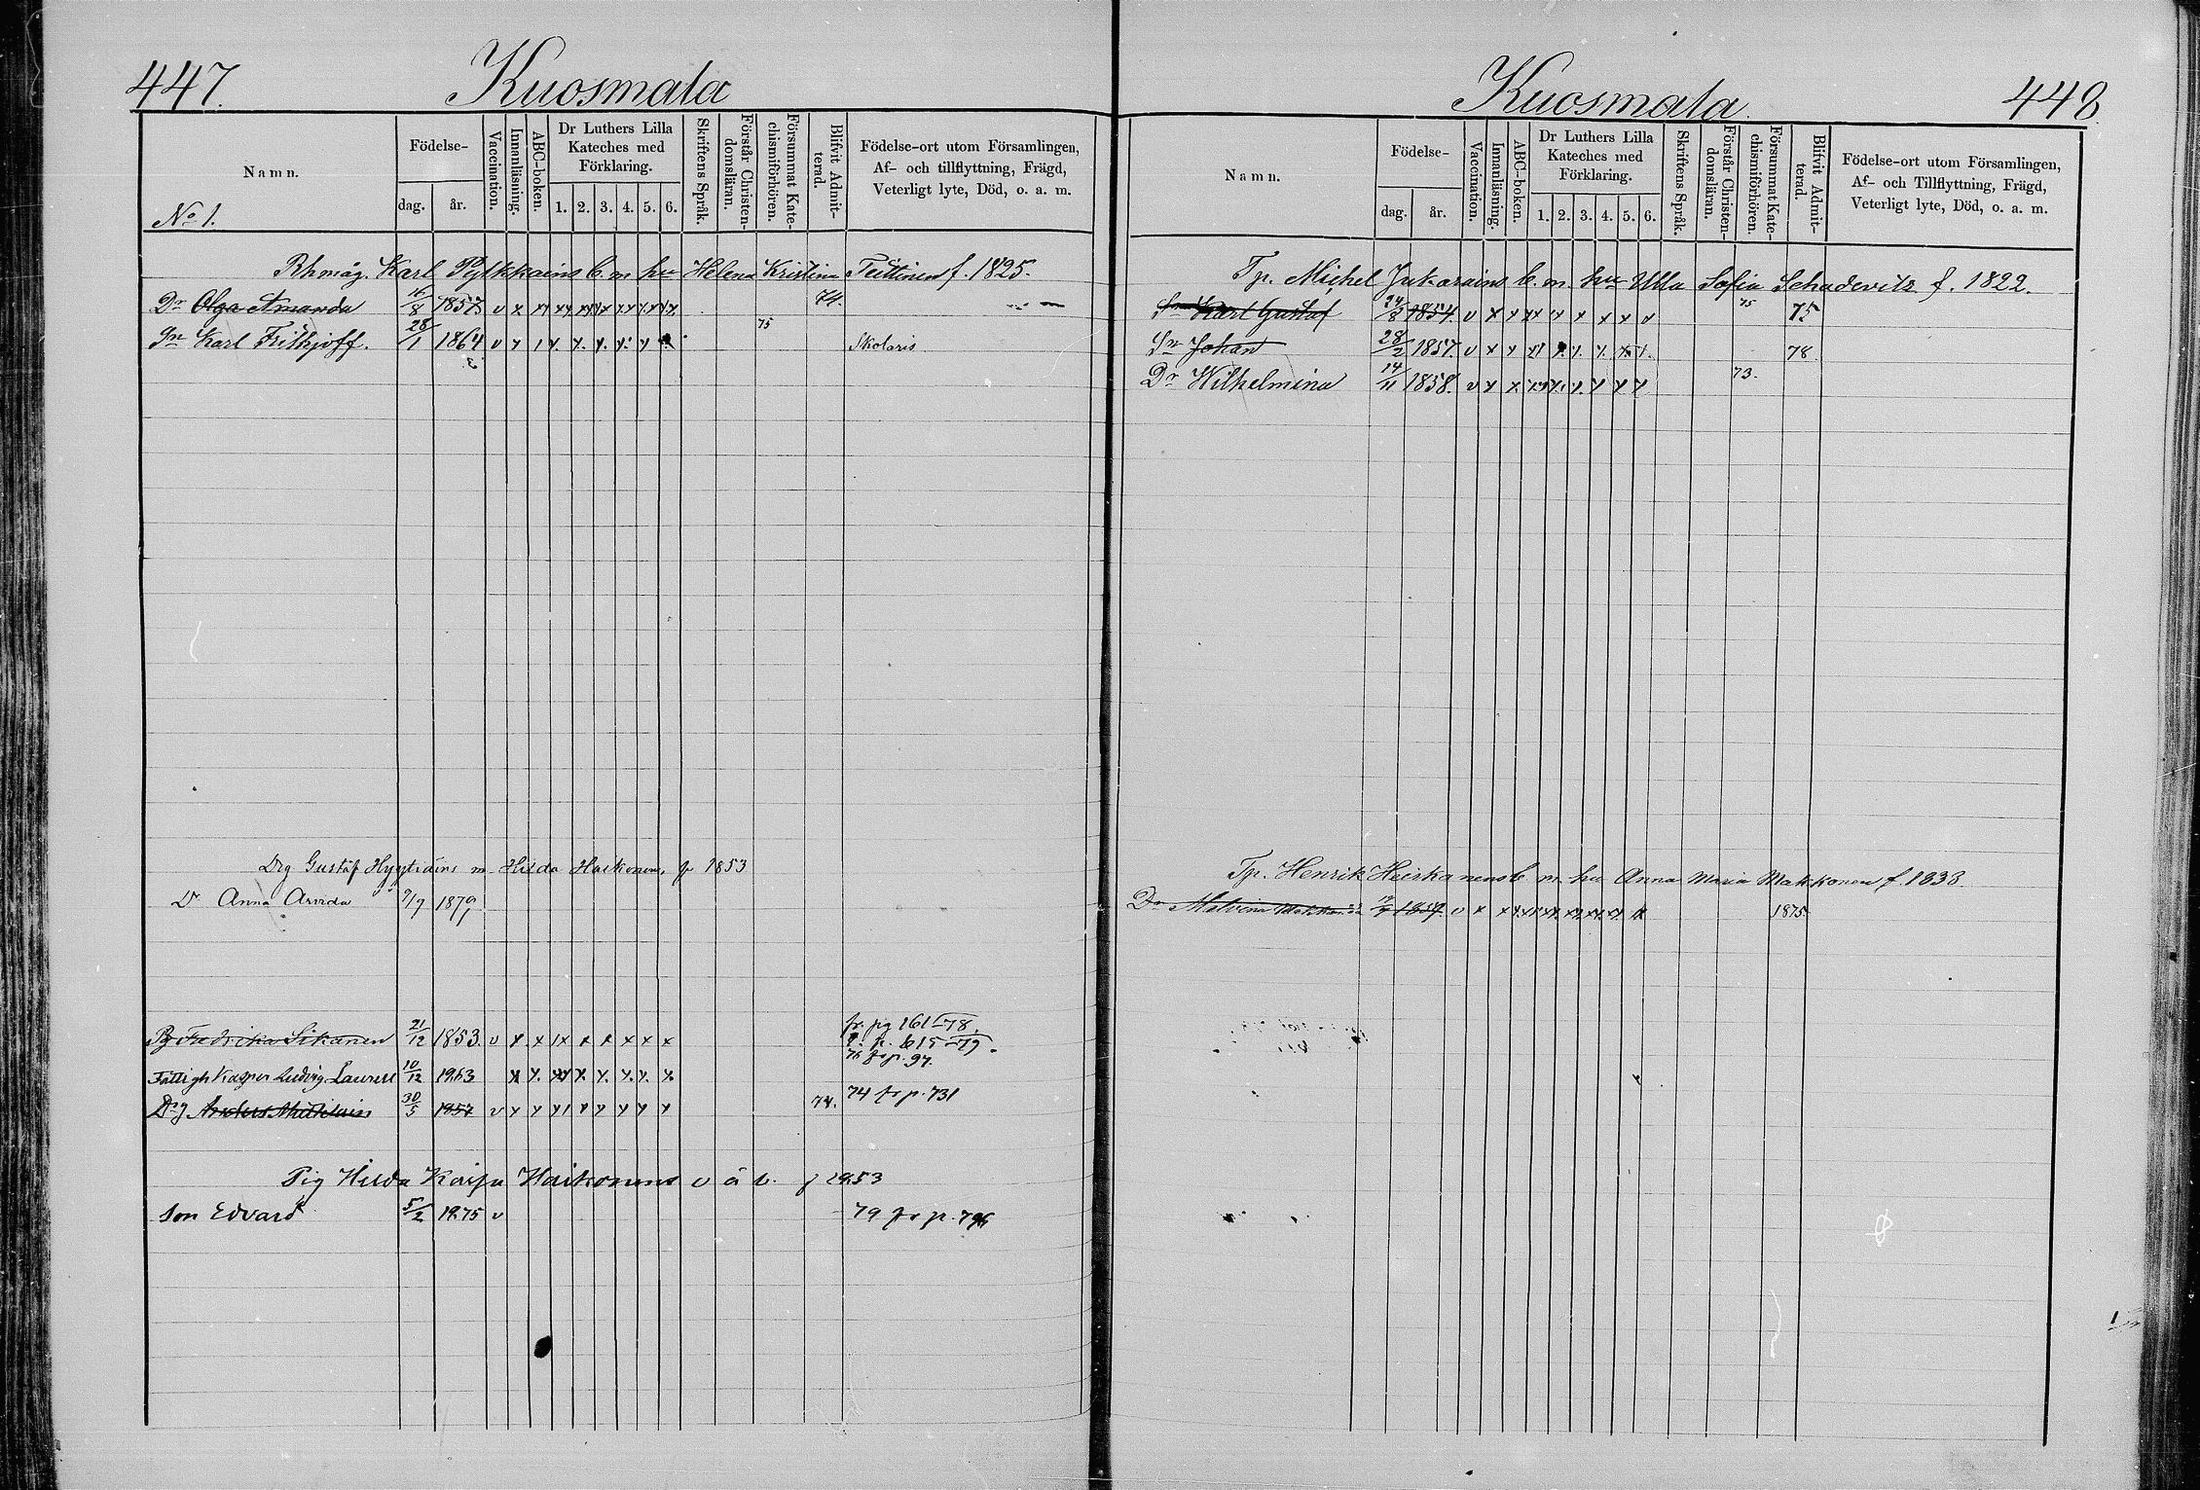 447.
Kuosmala
Namn.
Födelse-
dag.
år.
Vaccination.
Innanläsning.
ABC-boken.
Dr Luthers Lilla
Kateches med
Förklaring.
1. 2. 3. 4. 5. 6.
Skriftens Språk.
Förstår Christen-
domsläran.
Försummat Kate-
chismiförhören.
Blifvit Admit-
terad.
Födelse-ort utom Församlingen,
Af- och tillflyttning, Frägd,
Veterligt lyte, Död, o. a. m.
No 1.
Karl Pylkkäins b. m. hu Helena Kristina Teittinen f. 1825.
Dr Olga Amanda 16/8 1857 v 74.
Sn Karl Frithjoff. 28/1 1864 v 75 Skolaris
Drg Gustaf m. Hilda f. 1853
Dr Anna Arvida 9/9 1879
Fredrika Sikanen 21/12 1853 v fr. pg 161 - 78.
p. 615 - 79.
76 fr p. 97.
Ludvig Laurell 10/12 1863
Drg 30/5 1857 v 74. 74 fr p. 731
Pig Hilda Kaisa u ä b. f 1853
Son Edvard 5/2 1875 v 79 fr p.
Kuosmala.
448.
Namn.
Födelse-
dag.
år.
Vaccination.
Innanläsning.
ABC-boken.
Dr Luthers Lilla
Kateches med
Förklaring.
1. 2. 3. 4. 5. 6.
Skriftens Språk.
Förstår Christen-
domsläran.
Försummat Kate-
chismiförhören.
Blifvit Admit-
terad.
Födelse-ort utom Församlingen,
Af- och Tillflyttning, Frägd,
Veterligt lyte, Död, o. a. m.
Tp. Michel Jukarains b. m. hu Ulla Sofia Schadevitz f. 1822.
Sn Karl Gustaf 24/8 1854. v 75 75
Sn Johan 28/2 1857. v 78.
Dr Wilhelmina 14/11 1858. v 73.
Tp. Henrik Heiskanens b. m. hu Anna Maria Makkonen f. 1833.
Dr Malvina 1859 v 1875